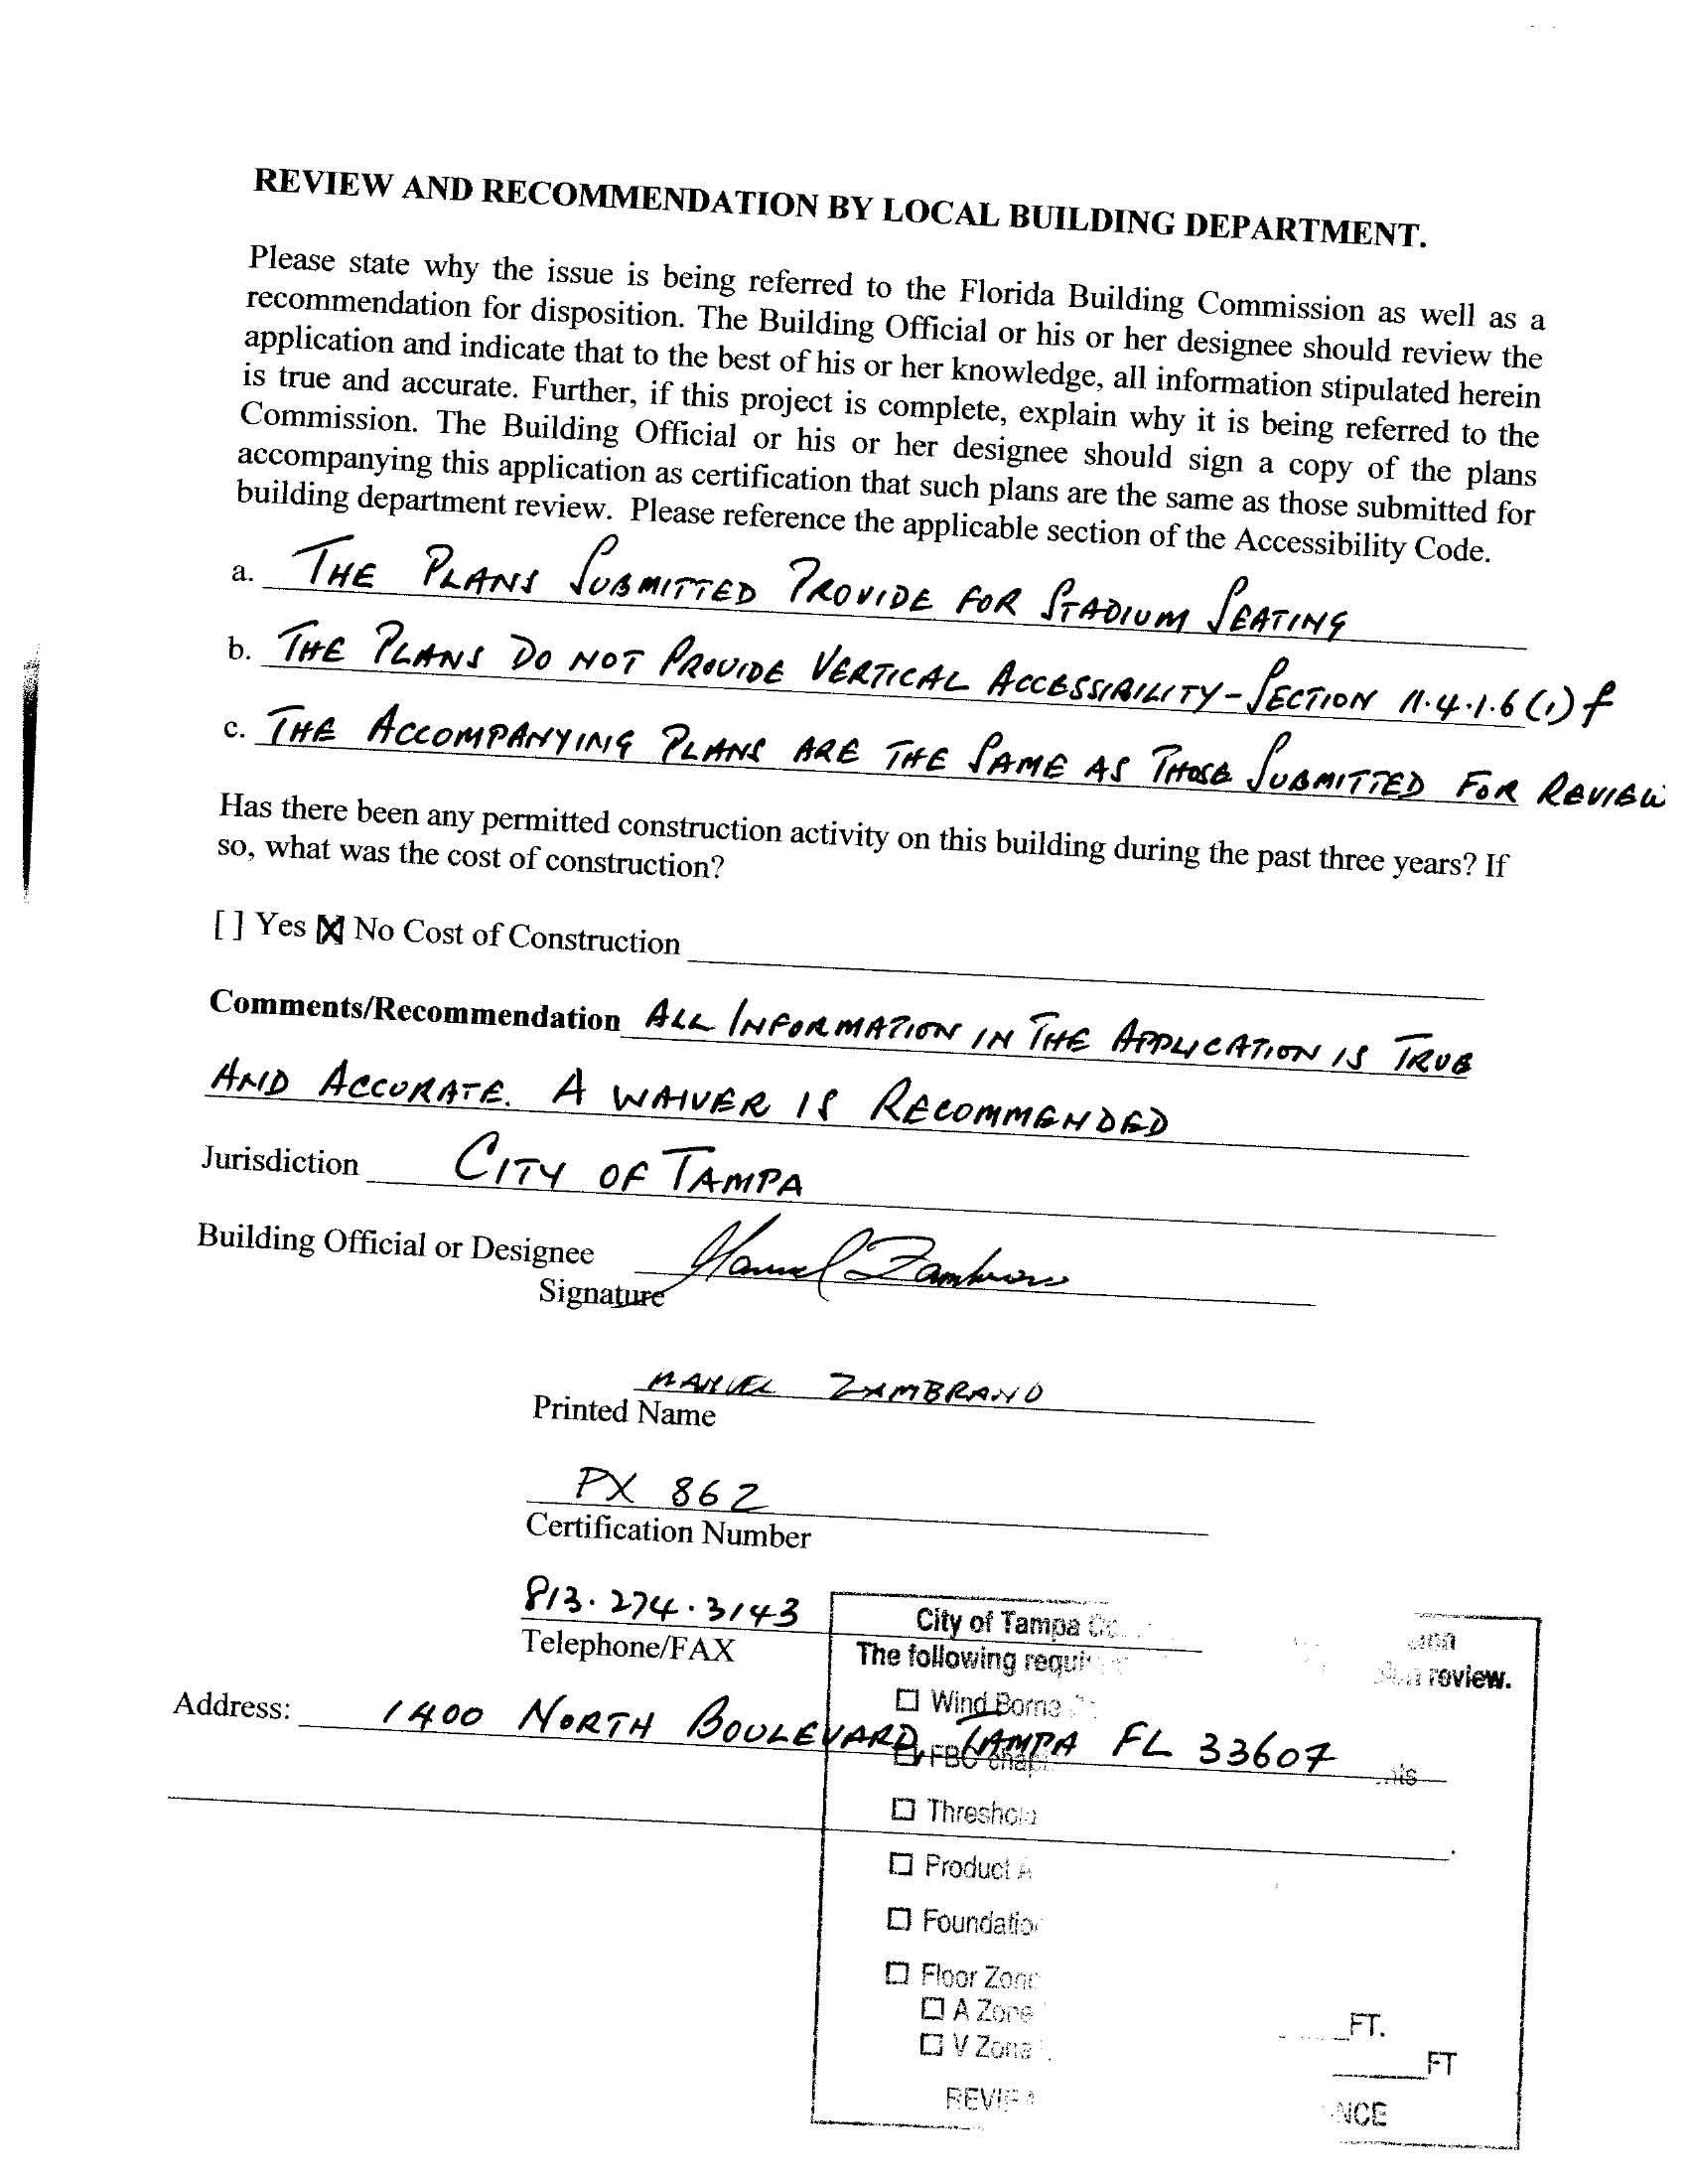 REVIEW AND RECOMMENDATION BY LOCAL BUILDING DEPARTMENT.
Please state why the issue is being referred to the Florida Building Commission as well as a
recommendation for disposition. The Building Official or his or her designee should review the
application and indicate that to the best of his or her knowledge, all information stipulated herein
is true and accurate. Further, if this project is complete, explain why it is being referred to the
Commission. The Building Official or his or her designee should sign a copy of the plans
accompanying this application as certification that such plans are the same as those submitted for
building department review. Please reference the applicable section of the Accessibility Code.
a. THE PLANS SUBMITTED PROVIDE FOR STADIUM SEATING
b. THE PLANS DO NOT PROVIDE VERTICAL ACCESSIBILITY - SECTION 11.4.1.6 (1) f
c. THE ACCOMPANYING PLANS ARE THE SAME AS THOSE SUBMITTED FOR REVIEW
Has there been any permitted construction activity on this building during the past three years? If
so, what was the cost of construction?
[ ] Yes [X] No Cost of Construction
Comments/Recommendation ALL INFORMATION IN THE APPLICATION IS TRUE
AND ACCURATE. A WAIVER IS RECOMMENDED
Jurisdiction CITY OF TAMPA
Building Official or Designee Manuel Zambrano
Signature
MANUEL ZAMBRANO
Printed Name
PX 862
Certification Number
813.274.3143
Telephone/FAX
City of Tampa
The following review.
Wind Borne
Address: 1400 NORTH BOULEVARD, TAMPA FL 33607
FBC
Threshold
Product A
Foundation
Floor Zone
A Zone FT.
V Zone FT